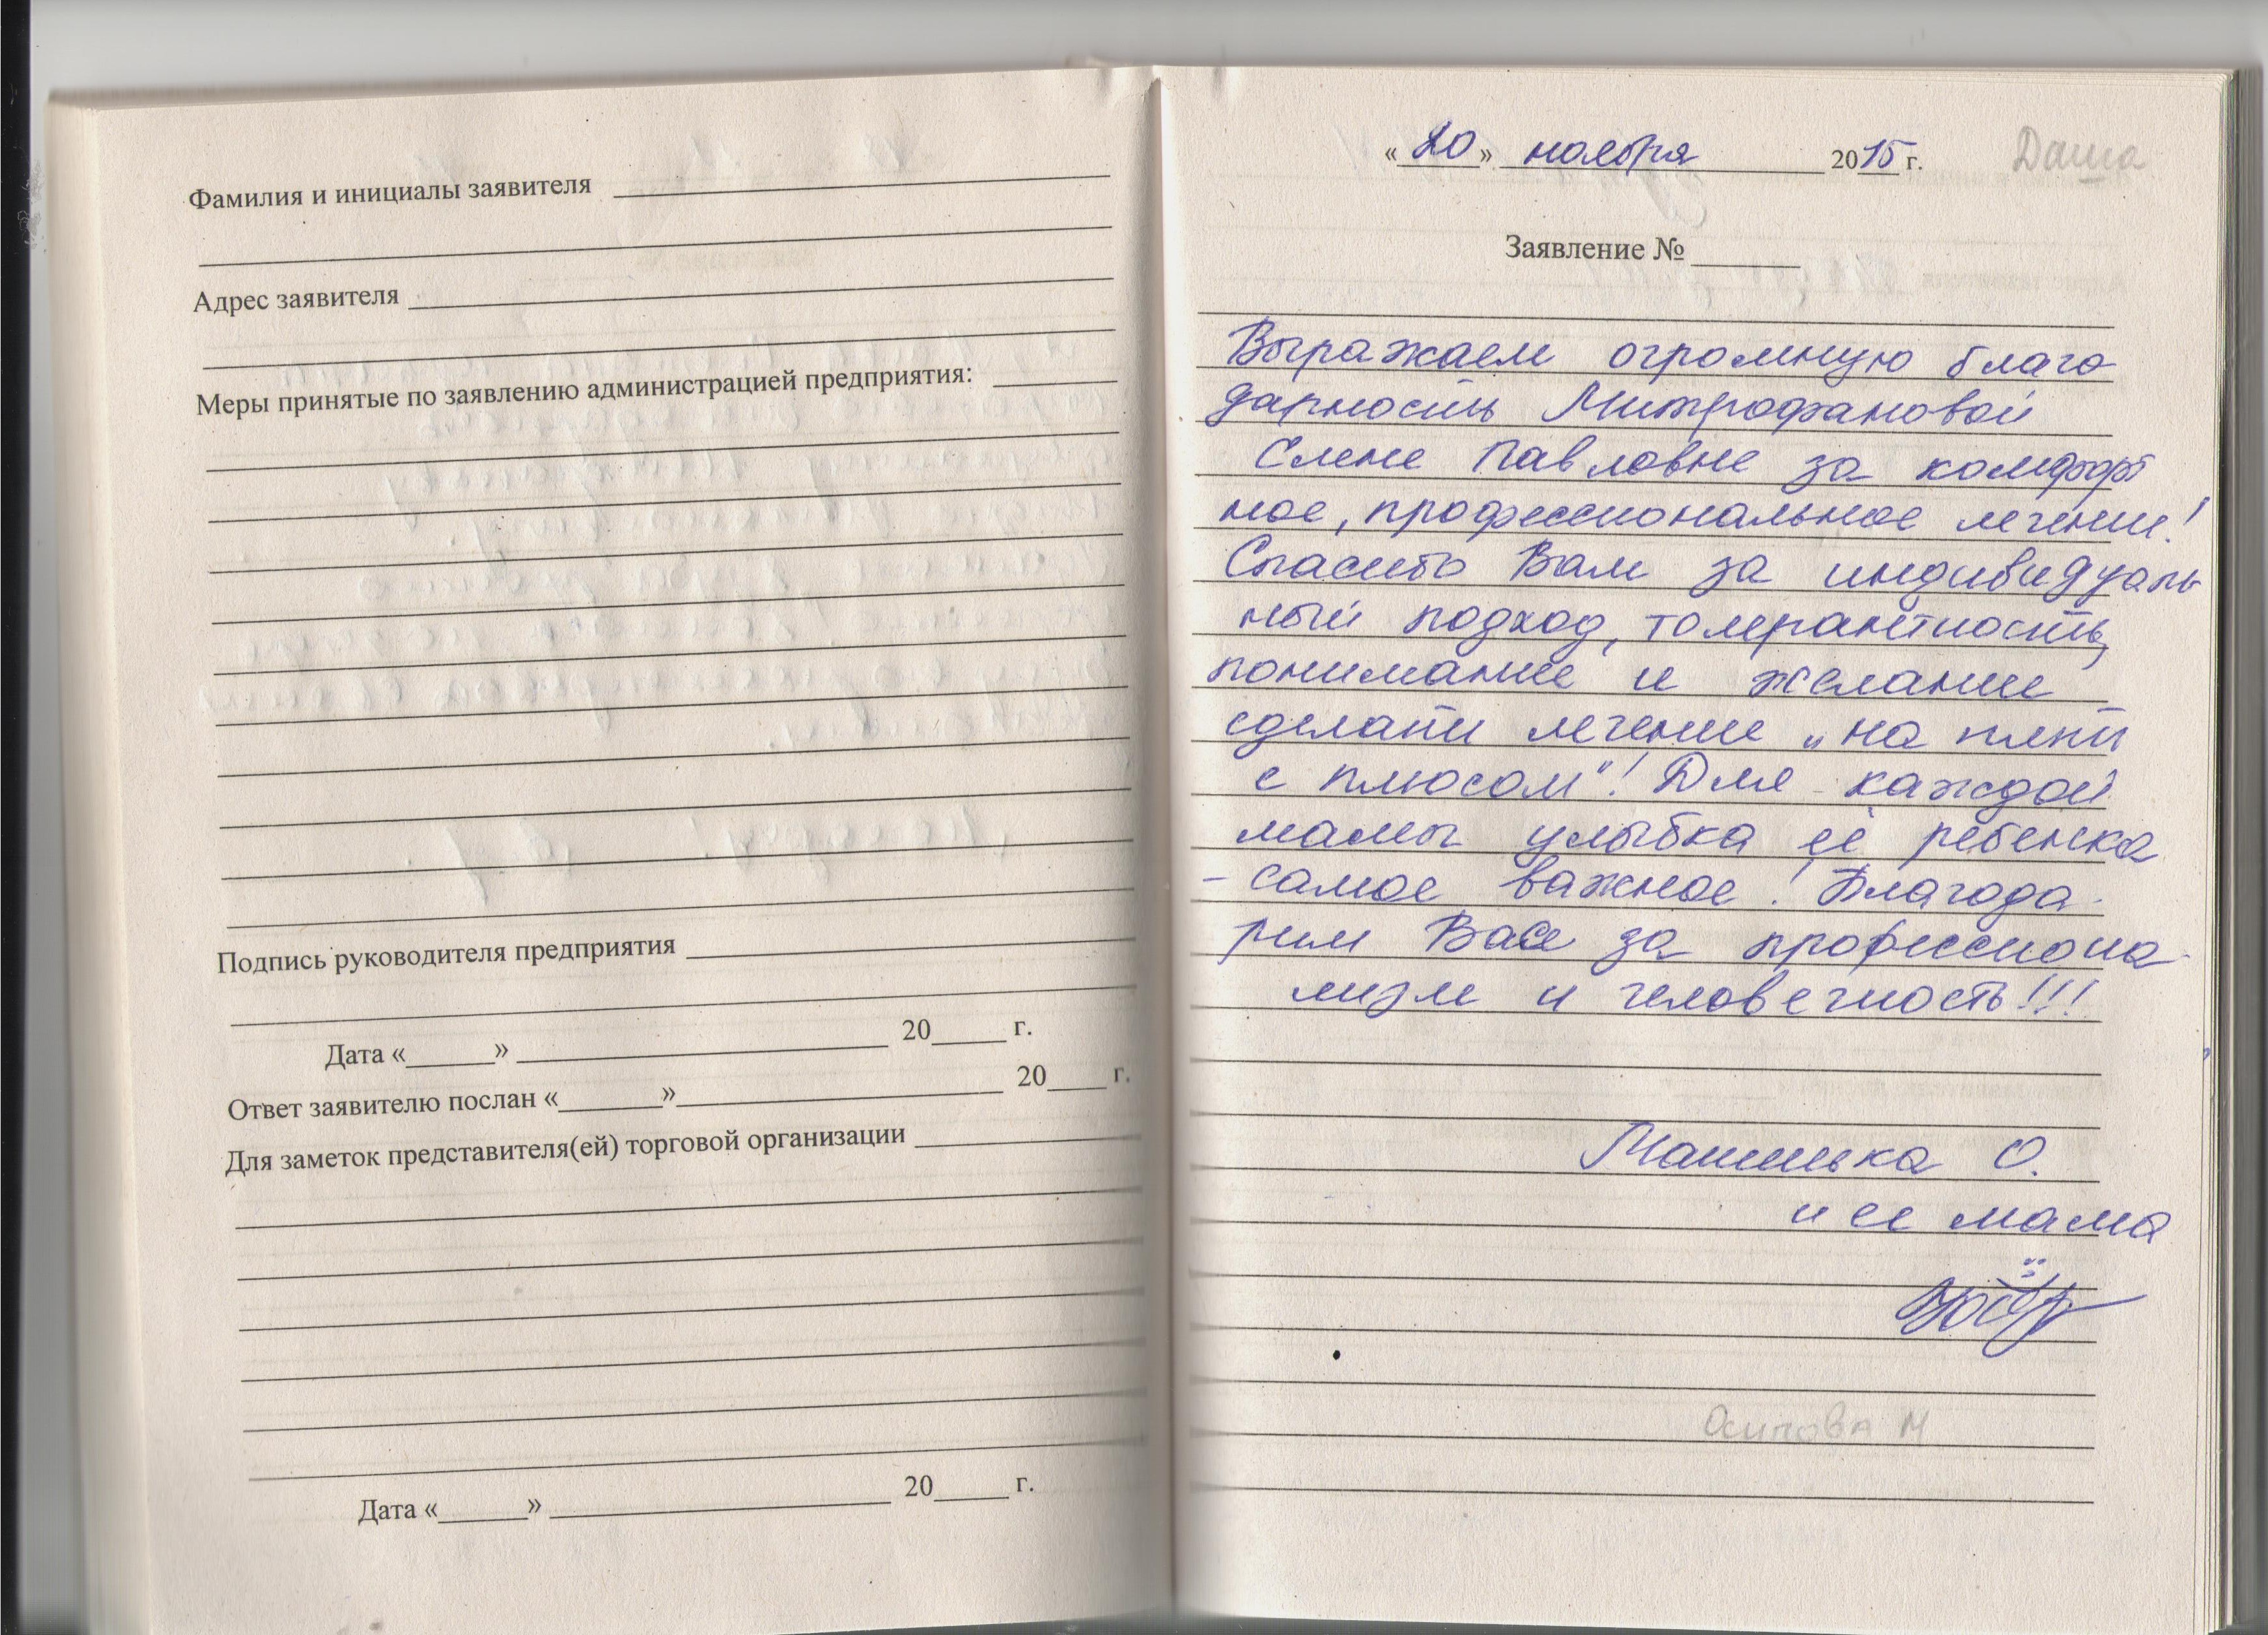 Фамилия и инициалы заявителя
Адрес заявителя
Меры принятые по заявлению администрацией предприятия:
Подпись руководителя предприятия
Дата «______» ______ 20____ г.
Ответ заявителю послан «______» ______ 20____ г.
Для заметок представителя(ей) торговой организации
Дата «______» ______ 20____ г.
«20» ноября 2015 г. Даша
Заявление № ______
Выражаем огромную благо
дарность Митрофановой
Елене Павловне за комфорт
ное, профессиональное лечение!
Спасибо Вам за индивидуаль
ный подход, толерантность,
понимание и желание
сделать лечение „на пять
с плюсом"! Для каждой
мамы улыбка её ребенка
- самое важное! Благода-
рим Вас за профессиона-
лизм и человечность!!!
Машенька О.
и ее мама
Осипова М